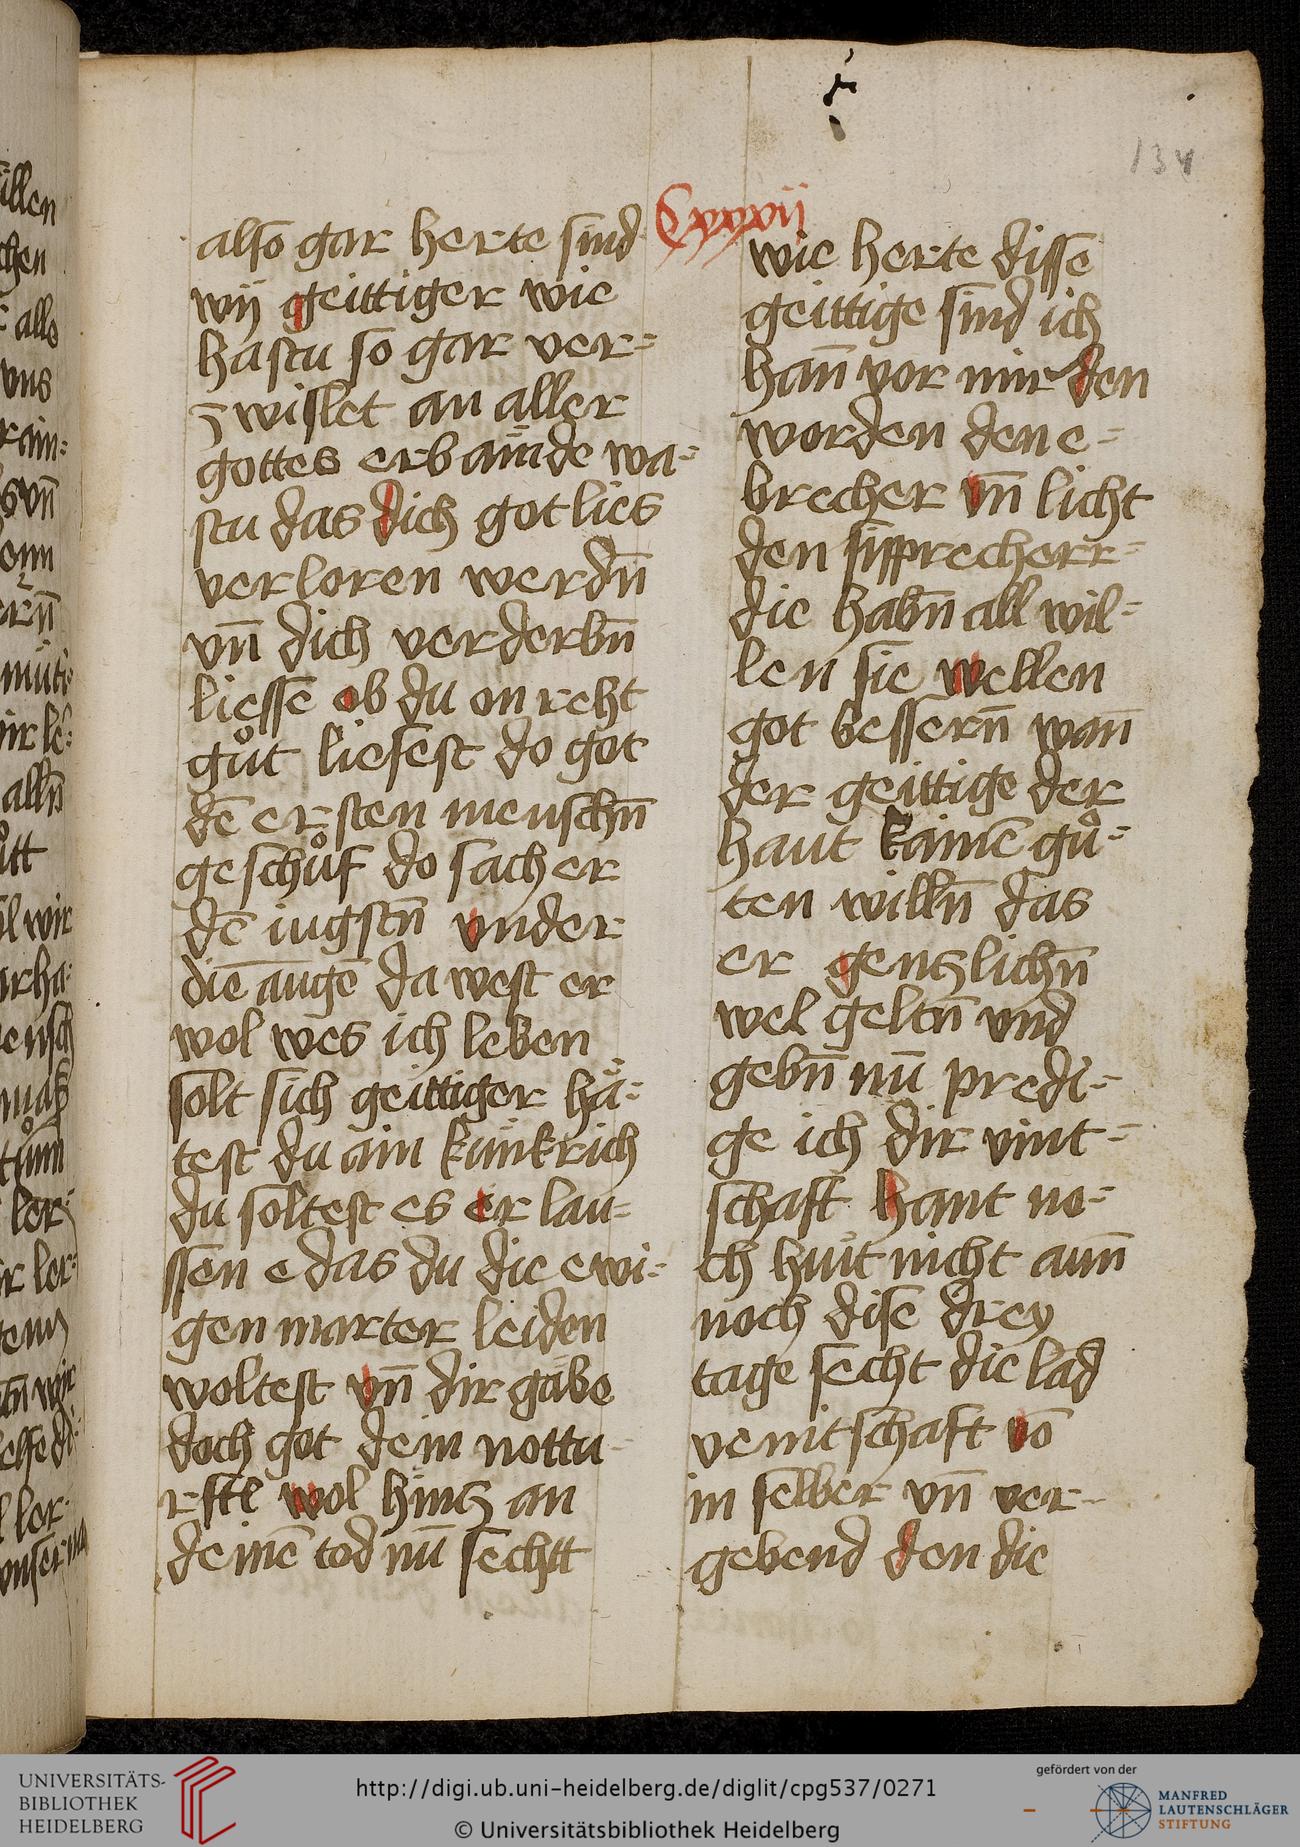 134
Cxxxvij
also gar herte sind
wij geittiger wie
hastu so gar ver=
zwislet an aller
gottes erbaͤmde wa=
stu das dich got lies
verloren werdn̄
vn̄ dich verderbn̄
liesse ob du on reht
guͦt liesest do got
dē ersten menschn̄
geschuͦf do sach er
dē iugstn̄ vnder
die augē da west er
wol wes ich leben
solt sich geittiger haͤ=
test du ain kuͤnkrich
du soltest es er lau=
ssen e das du die ewi=
gen marter leiden
woltest vn̄ dir gaͤbe
doch got dein nottu
rfte wol hintz an
deinē tod nu̅ sechtt
wie herte disse
geittige sind ich
han̄ vor mir den
worden den e=
brecher vn̄ licht
den sipprecherr=
die habn̄ all wil=
len sie wellen
got bessern̄ wan̄
der geittige der
haut kainē guͦ=
ten willn̄ das
er gentzlichn̄
wel geltn̄ vnd
gebn̄ nu̅ predi=
ge ich dir vint=
schaft hant no=
ch huͤt nicht aun̄
noch dise drey
tage secht die lad
venitschaft vō
in selber vn̄ ver=
gebend den die
UNIVERSITÄTS-
BIBLIOTHEK
HEIDELBERG
http://digi.ub.uni-heidelberg.de/diglit/cpg537/0271
© Universitätsbibliothek Heidelberg
gefördert von der
MANFRED
LAUTENSCHLÄGER
STIFTUNG